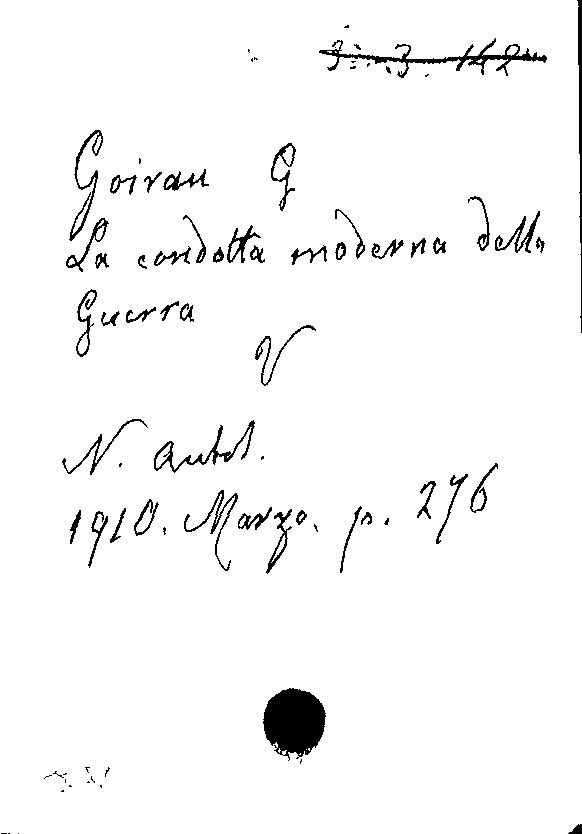 Goirau G
La condotta moderna della
Guerra
V
N. Antol.
1910. Marzo. p. 276